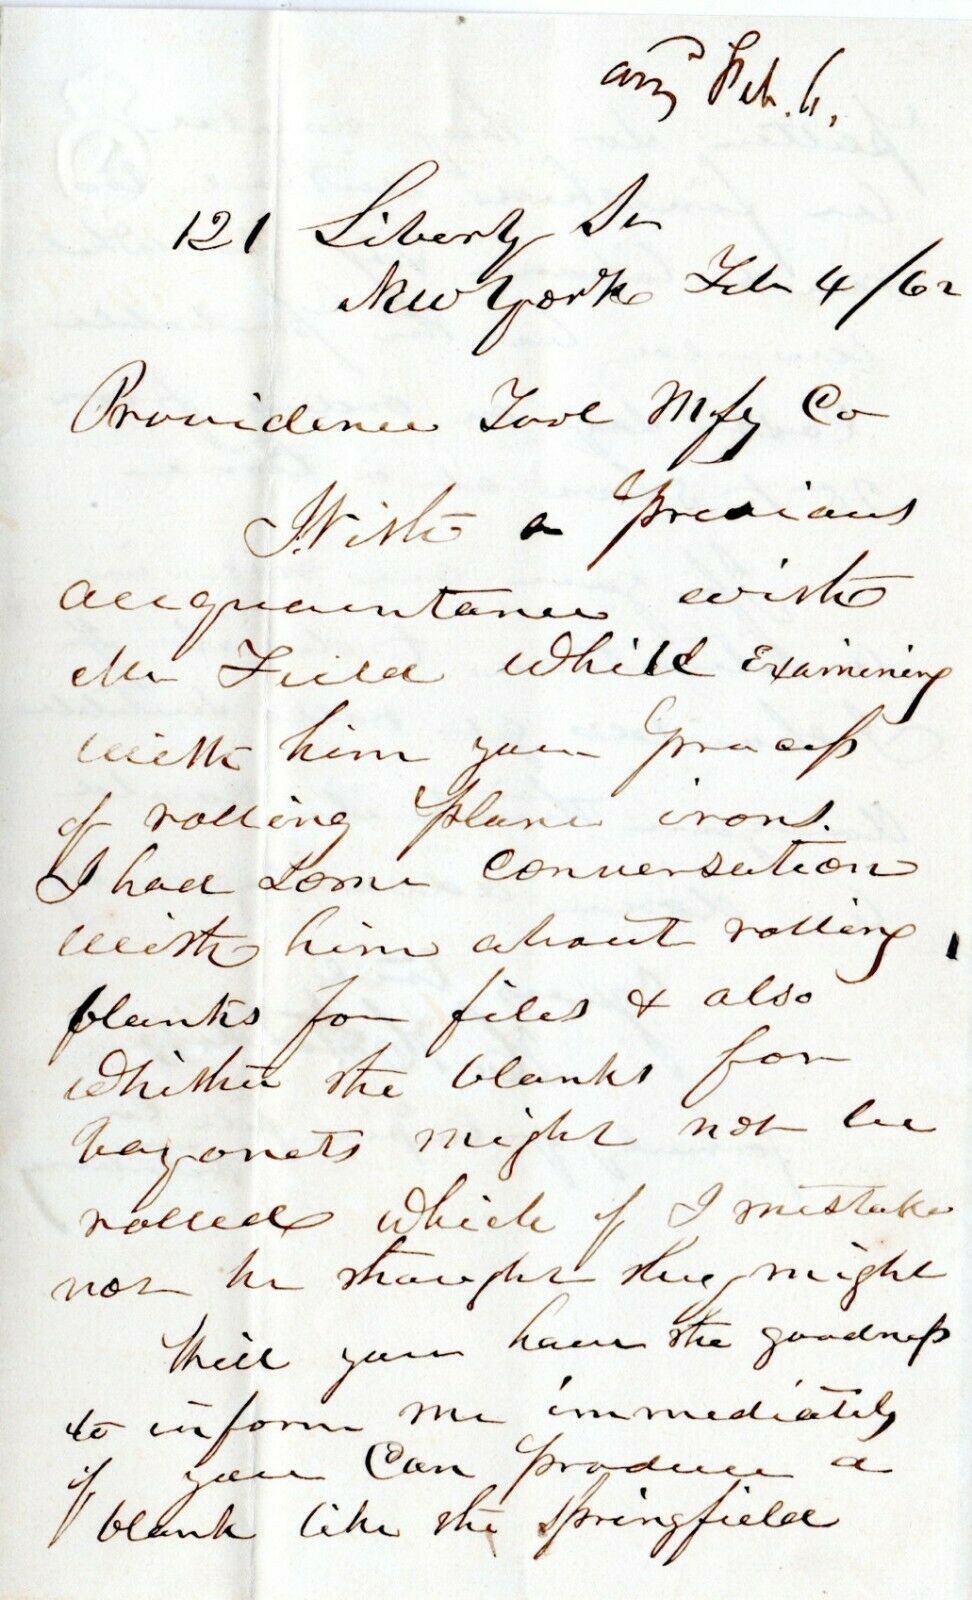 ansd Feb. 6,
121 Liberty St
New York Feb 4/62
Providence Tool Mfg Co
With a previous
acquaintance with
Mr Field whilst Examining
with him your process
of rolling plane irons.
I had some conversation
with him about rolling
blanks for files & also
whether the blanks for
bayonets might not be
rolled which if I mistake
not he thought they might
Will you have the goodness
to inform me immediately
if you can produce a
blank like the Springfield